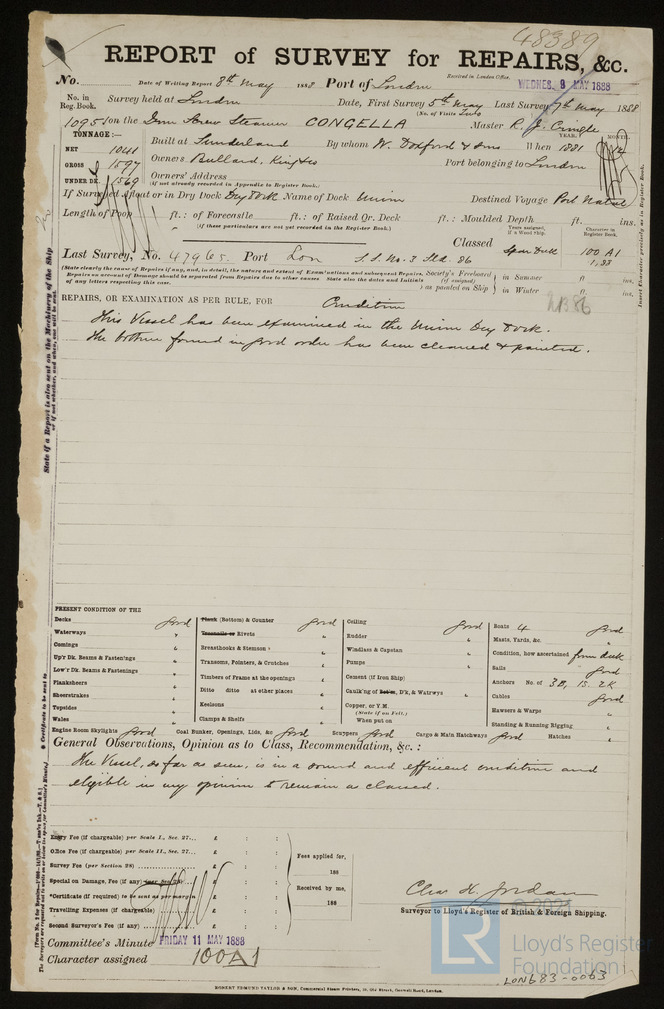 48389
REPORT of SURVEY for REPAIRS, &c.
No. Date of Writing Report 8th May 1888 Port of London Received in London Office, WEDNES. 9 MAY 1888
No. in Reg. Book. Survey held at London Date, First Survey 5th May Last Survey 7th May 1888
(No. of Visits Two)
1095 on the Iron Screw Steamer CONGELLA Master R. J.
TONNAGE:—
NET 1041
GROSS 1597
UNDER DK. 1569
Built at Sunderland By whom W. Doxford & Sons When 1881
YEAR. MONTH.
Owners Bullard, King & Co Port belonging to London
Owners' Address
(If not already recorded in Appendix to Register Book.)
If Surveyed Afloat or in Dry Dock Dry Dock Name of Dock Union Destined Voyage Port Natal
Length of Poop ft.: of Forecastle ft.: of Raised Qr. Deck ft.: Moulded Depth ft. ins.
(If these particulars are not yet recorded in the Register Book.)
Years assigned, if a Wood Ship. Character in Register Book.
Classed Spar Deck 100 A1
1,83
Last Survey, No. 47965. Port Lon S.S. No. 3 Sld. 86
(State clearly the cause of Repairs if any, and, in detail, the nature and extent of Examinations and subsequent Repairs.
Repairs on account of Damage should be separated from Repairs due to other causes. State also the dates and Initials
of any letters respecting this case.
Society's Freeboard (if assigned) as painted on Ship in Summer ft ins.
in Winter ft. ins.
REPAIRS, OR EXAMINATION AS PER RULE, FOR Condition
This Vessel has been examined in the Union Dry Dock.
The bottom found in good order has been cleaned & painted.
State if a Report is also sent on the Machinery of the Ship
Insert Character precisely as in Register Book.
PRESENT CONDITION OF THE
Decks good
Waterways "
Comings "
Up'r Dk. Beams & Fastenings "
Low'r Dk. Beams & Fastenings "
Planksheers "
Sheerstrakes "
Topsides "
Wales "
Plank (Bottom) & Counter good
Treenails or Rivets "
Breasthooks & Stemson "
Transoms, Pointers, & Crutches "
Timbers of Frame at the openings "
Ditto ditto at other places "
Keelsons "
Clamps & Shelfs "
Ceiling good
Rudder "
Windlass & Capstan "
Pumps "
Cement (if Iron Ship) "
Caulk'ng of D'k, & Watrwys "
Copper, or Y.M.
(State if on Felt.)
When put on
Boats 4 good
Masts, Yards, &c. "
Condition, how ascertained from deck
Sails good
Anchors No. of 3B, 1S. 2K
Cables good
Hawsers & Warps "
Standing & Running Rigging "
Engine Room Skylights good Coal Bunker, Openings, Lids, &c good Scuppers good Cargo & Main Hatchways good Hatches "
General Observations, Opinion as to Class, Recommendation, &c. :
The Vessel, as far as seen, is in a sound and efficient condition and
eligible in my opinion to remain as classed.
Entry Fee (if chargeable) per Scale I., Sec. 27... £ : :
Office Fee (if chargeable) per Scale II., Sec. 27... £ : :
Survey Fee (per Section 28) £ : :
Special on Damage, Fee (if any) (per Sec 28) £ : :
*Certificate (if required) to be sent as per margin £ : :
Travelling Expenses (if chargeable) £ : :
Second Surveyor's Fee (if any) £ : :
Fees applied for,
188
Received by me,
188
Chas H. Jordan
Surveyor to Lloyd's Register of British & Foreign Shipping.
Committee's Minute FRIDAY 11 MAY 1888
Character assigned 100A1
LR
© 2021
Lloyd's Register
Foundation
LON683-0063
ROBERT EDMUND TAYLOR & SON, Commercial Steam Printers, 19, Old Street, Goswell Road, London.